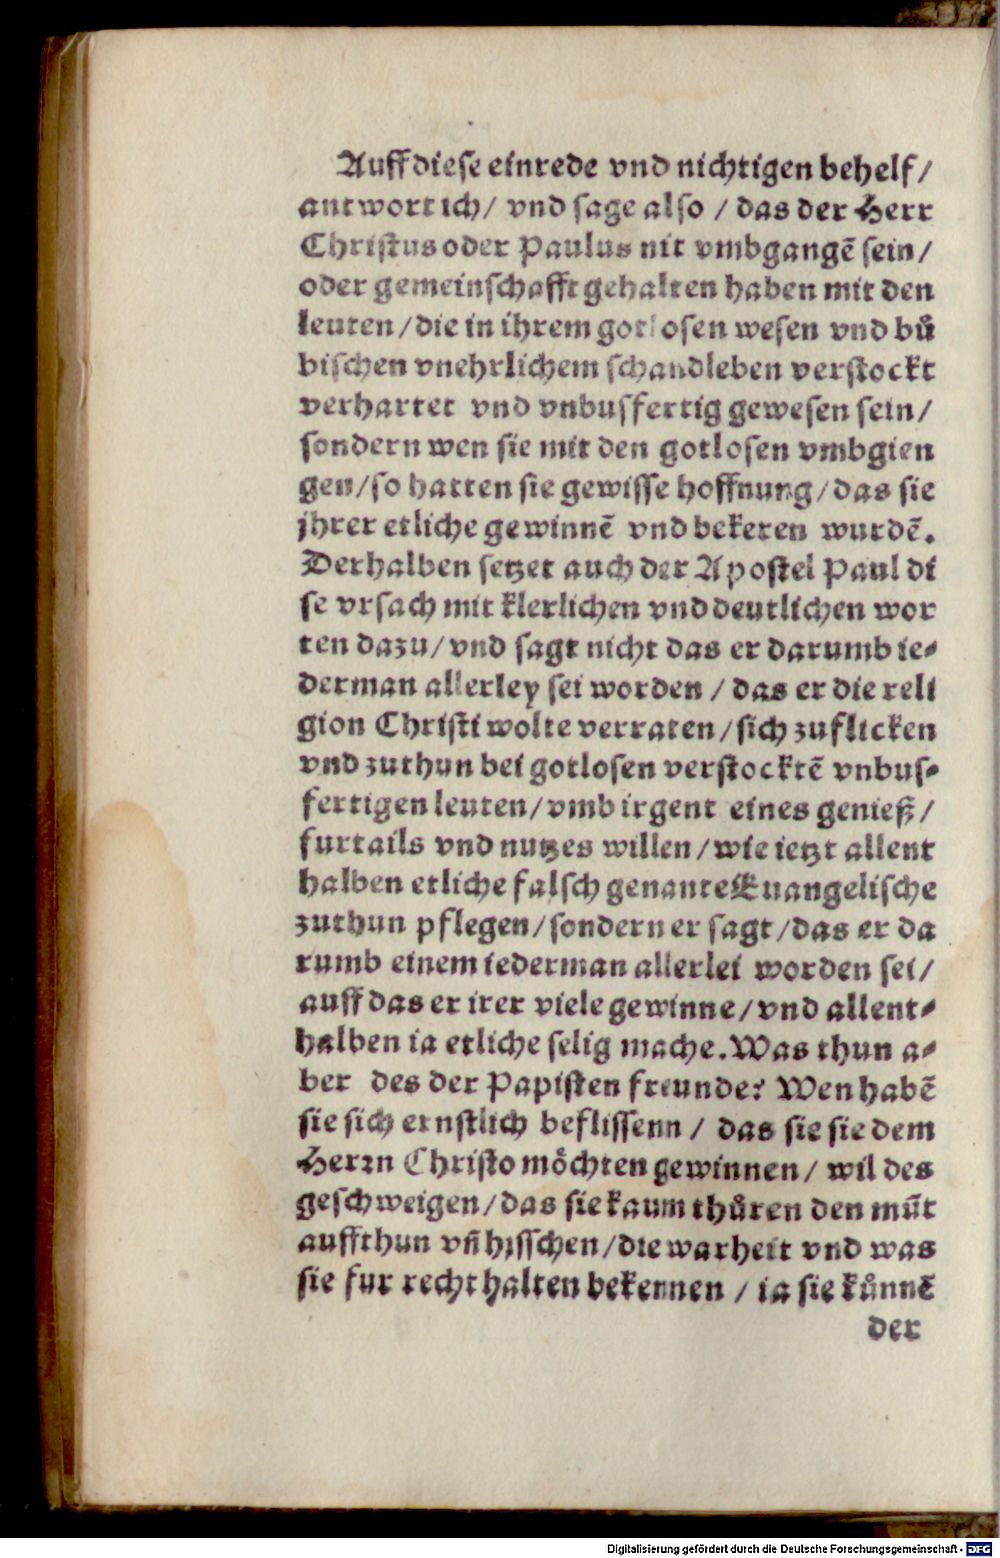 Auff diese einrede vnd nichtigen behelf/
antwort ich/ vnd sage also / das der Herr
Christus oder Paulus nit vmbgangē sein/
oder gemeinschafft gehalten haben mit den
leuten/die in ihrem gotlosen wesen vnd bů
bischen vnehrlichem schandleben verstockt
verhartet vnd vnbusfertig gewesen sein/
sondern wen sie mit den gotlosen vmbgien
gen/so hatten sie gewisse hoffnung/das sie
jhrer etliche gewinnē vnd bekeren wurdē.
Derhalben setzet auch der Apostel Paul di
se vrsach mit klerlichen vnd deutlichen wor
ten dazu/vnd sagt nicht das er darumb ie⸗
derman allerley sei worden / das er die reli
gion Christi wolte verraten/sich zuflicken
vnd zuthun bei gotlosen verstocktē vnbus⸗
fertigen leuten/vmb irgent eines genieß/
furtails vnd nutzes willen/wie ietzt allent
halben etliche falsch genante Euangelische
zuthun pflegen/sondern er sagt/das er da
rumb einem iederman allerlei worden sei/
auff das er irer viele gewinne/vnd allent⸗
halben ia etliche selig mache. Was thun a⸗
ber des der Papisten freunde? Wen habē
sie sich ernstlich beflissenn / das sie sie dem
Herrn Christo mőchten gewinnen/ wil des
geschweigen/das sie kaum thůren den mūt
auffthun vn̄ hisschen/die warheit vnd was
sie fur recht halten bekennen / ia sie kůnnē
der
Digitalisierung gefördert durch die Deutsche Forschungsgemeinschaft - DFG